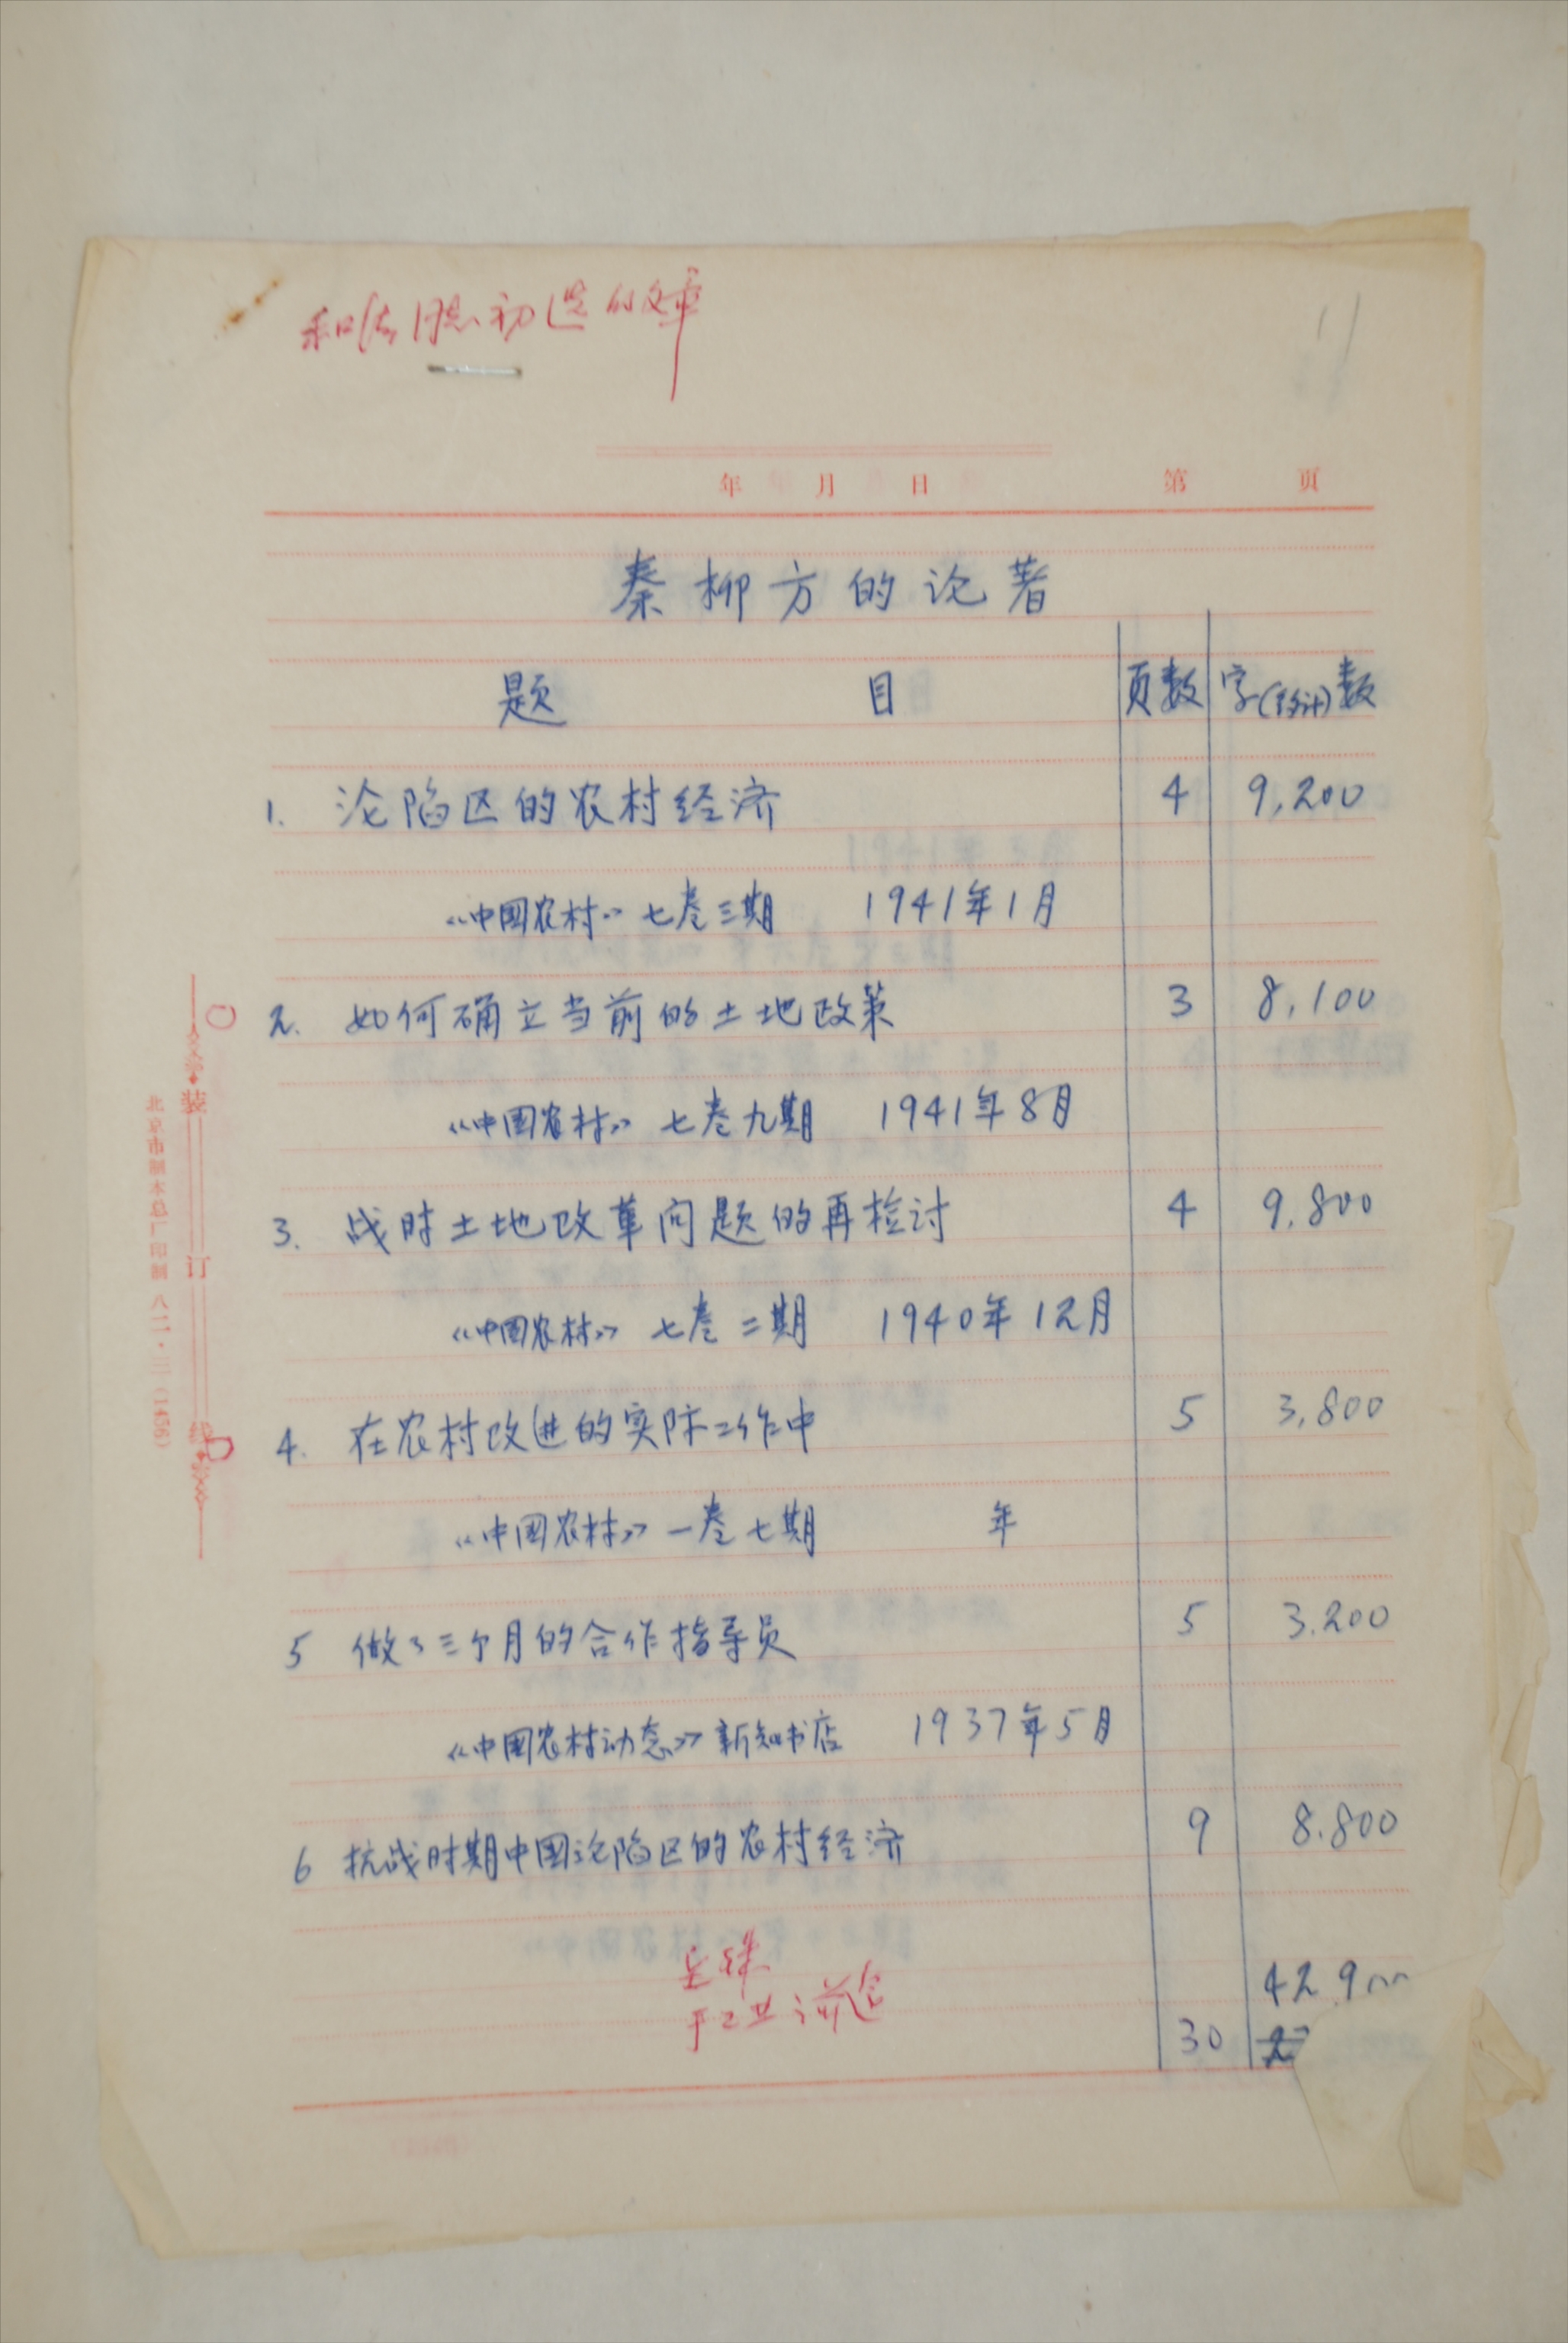 和法同志初选的文章
11
年 月 日 第 页
秦柳方的论著
题 目 页数 字(估计)数
1. 沦陷区的农村经济 4 9,200
《中国农村》七卷三期 1941年1月
2. 如何确立当前的土地政策 3 8,100
《中国农村》七卷九期 1941年8月
3. 战时土地改革问题的再检讨 4 9,800
《中国农村》七卷二期 1940年12月
4. 在农村改进的实际工作中 5 3,800
《中国农村》一卷七期 年
5 做了三个月的合作指导员 5 3.200
《中国农村动态》新知书店 1937年5月
6 抗战时期中国沦陷区的农村经济 9 8.800
42.900
30
装订线
北京市制本总厂印制 八二·三(1456)